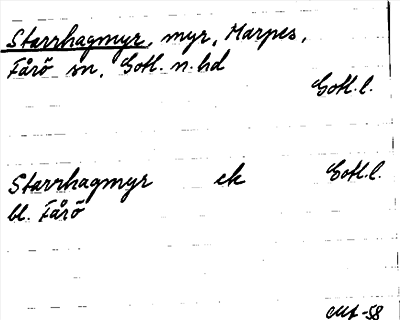 Starrhagmyr, myr, Marpes,
Fårö sn, Gotl. n. hd
Gotl. l.
Starrhagmyr ek Gotl. l.
bl. Fårö
-58